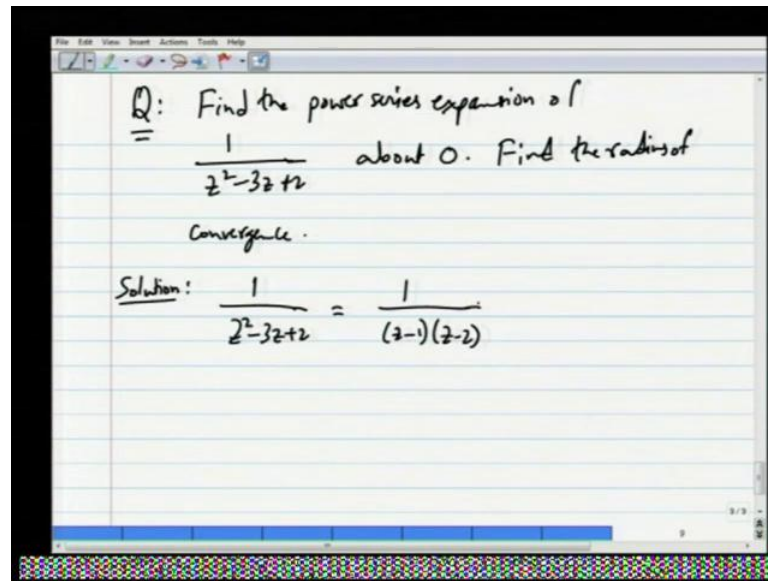 File Edit View Insert Actions Tools Help
Q: Find the power series expansion of
1/(z²-3z+2) about 0. Find the radius of
convergence.
Solution: 1/(z²-3z+2) = 1/((z-1)(z-2))
3/3
9